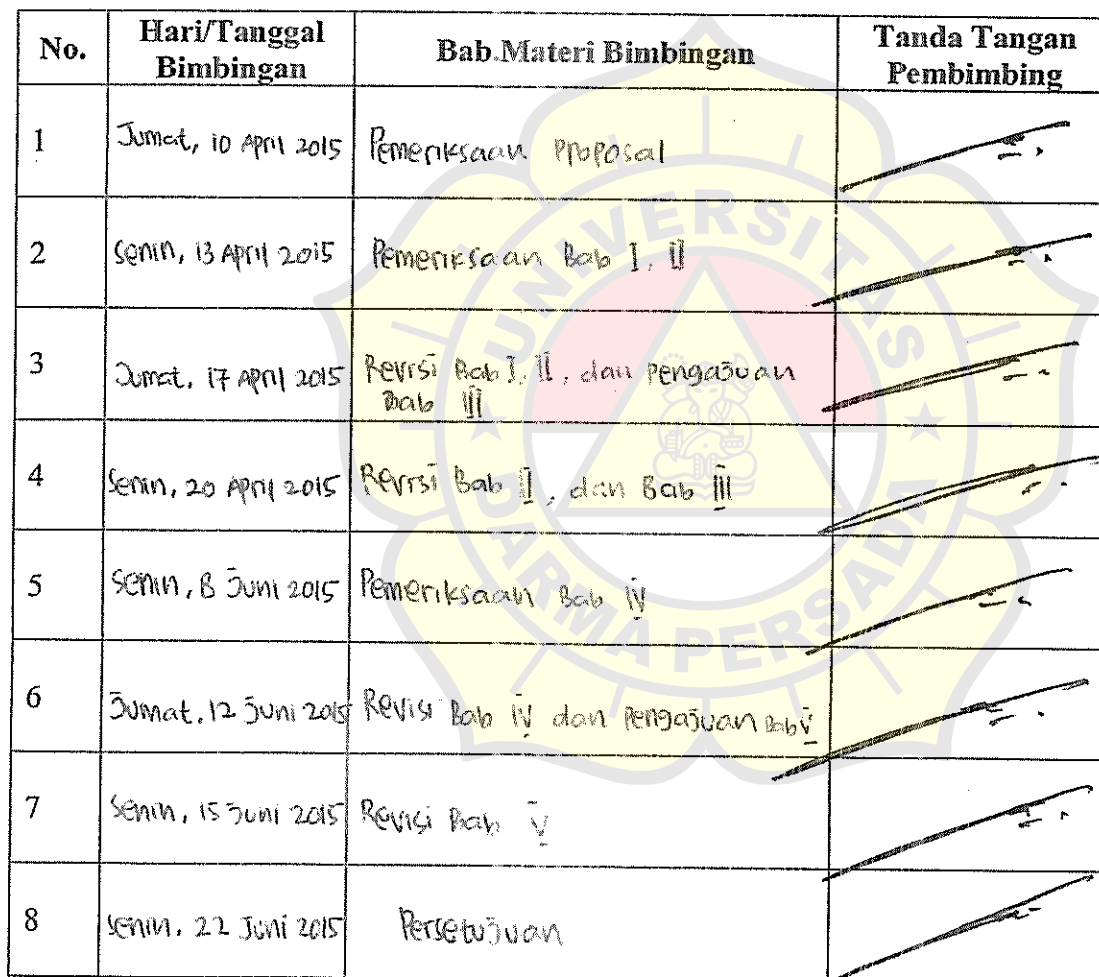 No. Hari/Tanggal Bimbingan Bab.Materi Bimbingan Tanda Tangan Pembimbing
1 Jumat, 10 April 2015 Pemeriksaan Proposal
2 Senin, 13 April 2015 Pemeriksaan Bab I, II
3 Jumat, 17 April 2015 Revisi Bab I, II, dan Pengajuan
Bab III
4 Senin, 20 April 2015 Revisi Bab II, dan Bab III
5 Senin, 8 Juni 2015 Pemeriksaan Bab IV
6 Jumat, 12 Juni 2015 Revisi Bab IV dan Pengajuan Bab V
7 Senin, 15 Juni 2015 Revisi Bab V
8 Senin, 22 Juni 2015 Persetujuan
UNIVERSITAS
DARMA PERSADA